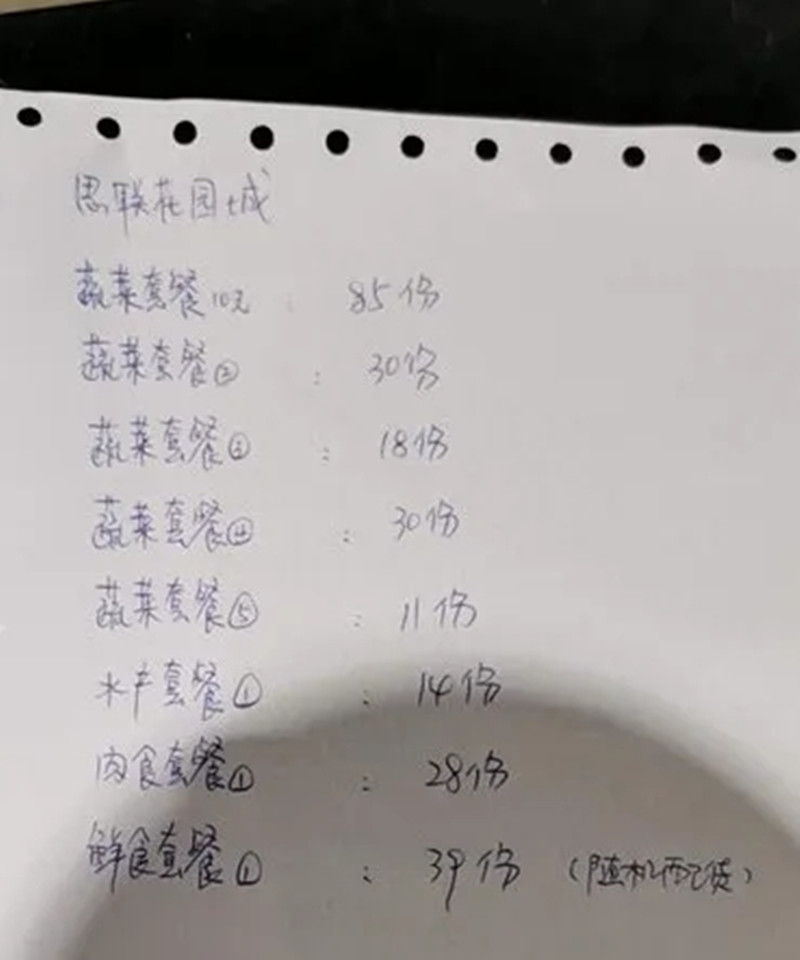 思联花园城
蔬菜套餐10元 : 85份
蔬菜套餐② : 30份
蔬菜套餐③ : 18份
蔬菜套餐④ : 30份
蔬菜套餐⑤ : 11份
水产套餐① : 14份
肉食套餐① : 28份
鲜食套餐① : 39份 (随机配货)